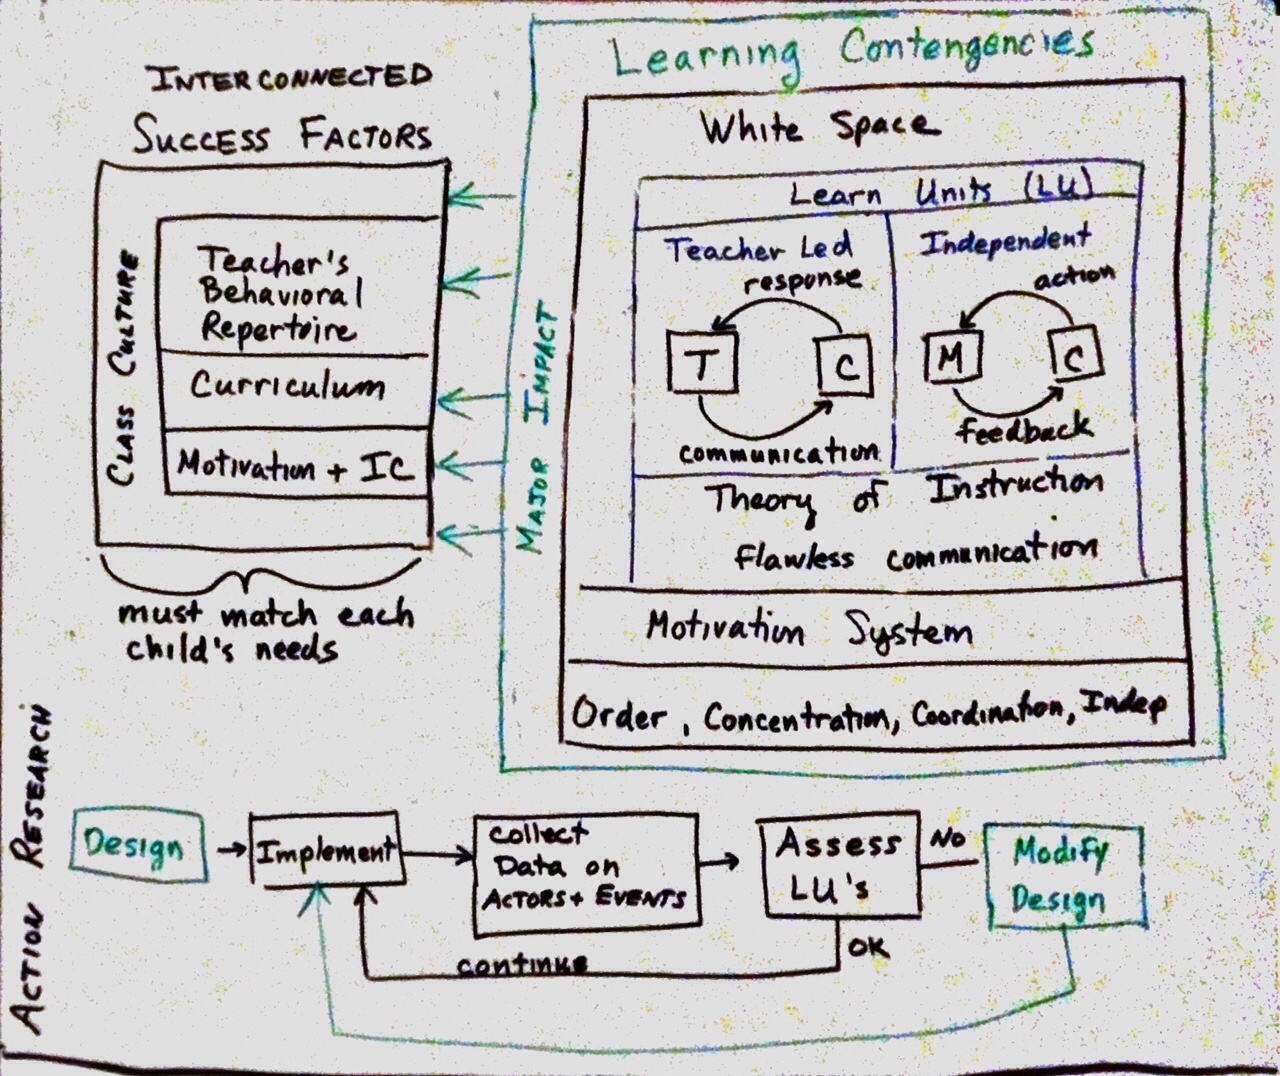 INTERCONNECTED
SUCCESS FACTORS
CLASS CULTURE
Teacher's
Behavioral
Repertoire
Curriculum
Motivation + IC
must match each
child's needs
MAJOR IMPACT
Learning Contengencies
White Space
Learn Units (LU)
Teacher Led
response
T
C
communication
Independent
action
M
C
feedback
Theory of Instruction
flawless communication
Motivation System
Order, Concentration, Coordination, Indep
ACTION RESEARCH
Design
Implement
collect
Data on
ACTORS + EVENTS
Assess
LU's
No
Modify
Design
OK
continue